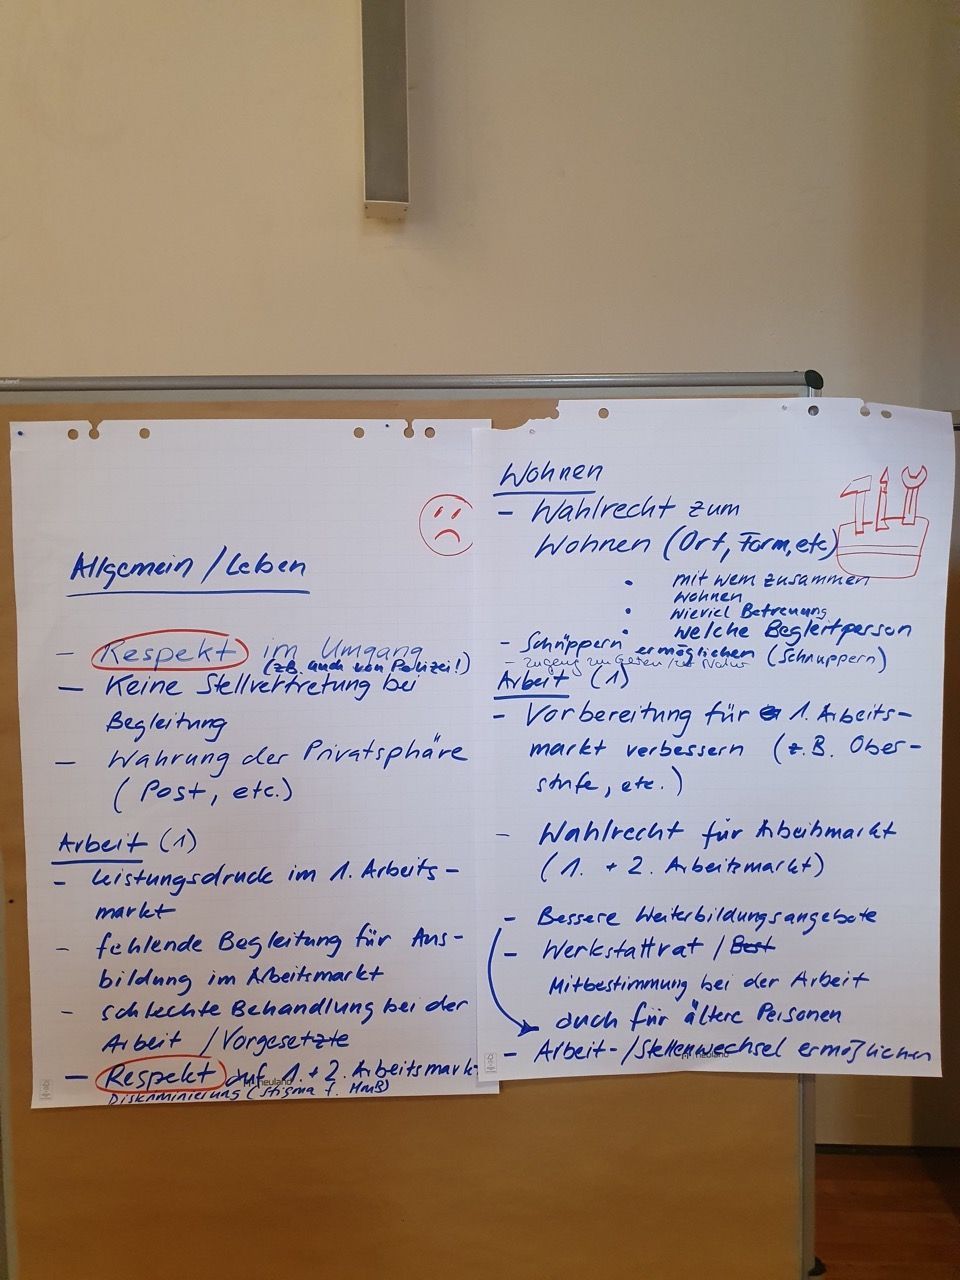 Allgemein / Leben
- Respekt im Umgang
(z.B. auch von Polizei!)
- Keine Stellvertretung bei
Begleitung
- Wahrung der Privatsphäre
(Post, etc.)
Arbeit (1)
- Leistungsdruck im 1. Arbeits-
markt
- fehlende Begleitung für Aus-
bildung im Arbeitsmarkt
- schlechte Behandlung bei der
Arbeit / Vorgesetzte
- Respekt auf 1. + 2. Arbeitsmarkt
Diskriminierung (Stigma f. MmB)
neuland
Wohnen
- Wahlrecht zum
Wohnen (Ort, Form, etc)
• mit wem zusammen
wohnen
• wieviel Betreuung
• welche Begleitperson
- Schnuppern ermöglichen (Schnuppern)
- Zugang zu Gärten / zur Natur
Arbeit (1)
- Vorbereitung für 1. Arbeits-
markt verbessern (z.B. Ober-
stufe, etc.)
- Wahlrecht für Arbeitsmarkt
(1. + 2. Arbeitsmarkt)
- Bessere Weiterbildungsangebote
- Werkstattrat / Best
Mitbestimmung bei der Arbeit
auch für ältere Personen
- Arbeit-/Stellenwechsel ermöglichen
neuland